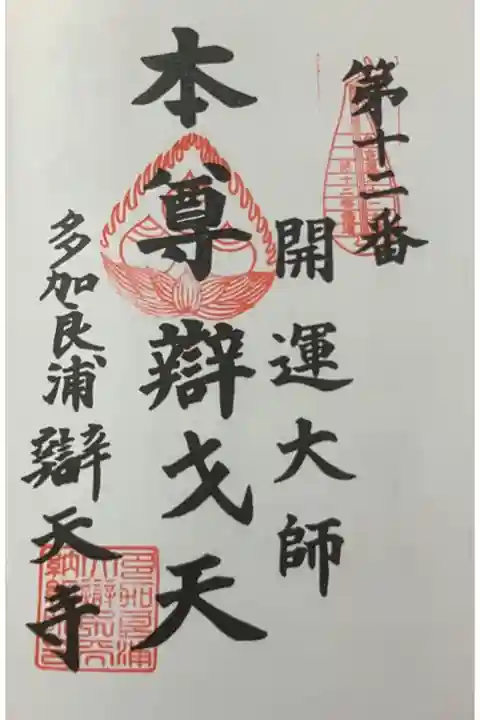 第十二番
開運大師
本尊辯才天
多加良浦辯天寺